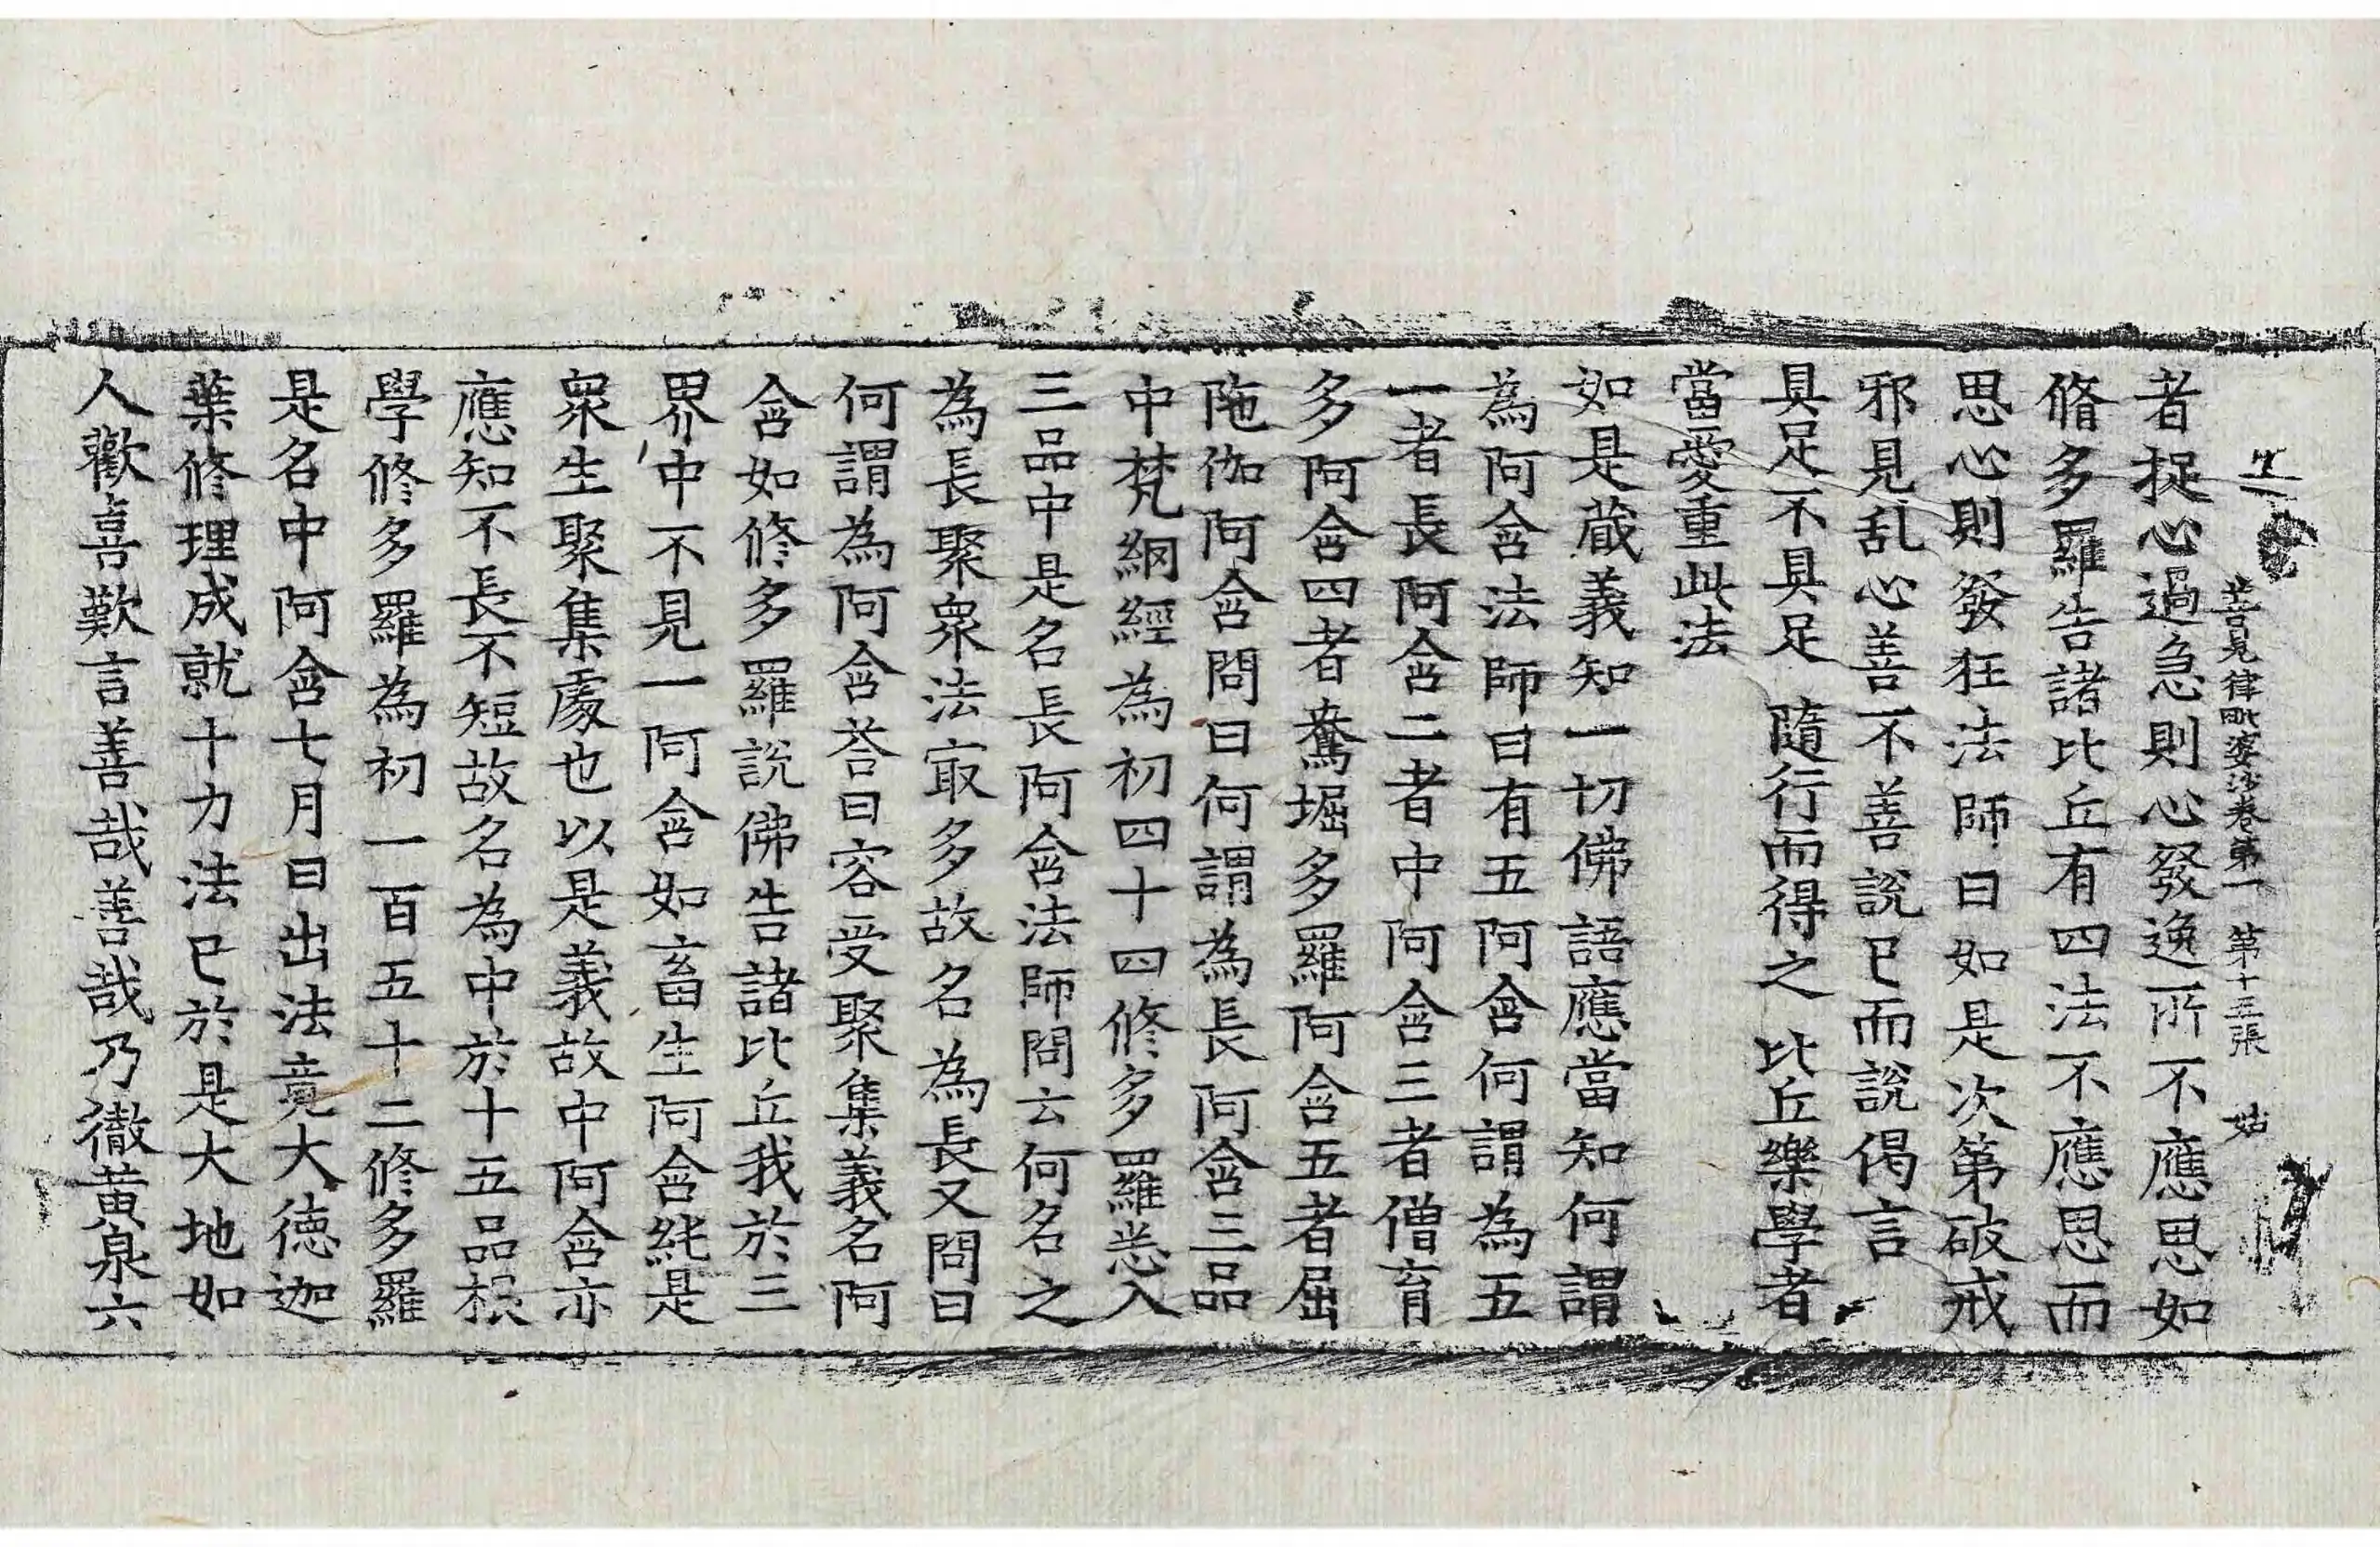 善見律毗婆沙卷第一 第十三張 姑
者捉心過急則心發逸所不應思如
脩多羅告諸比丘有四法不應思而
思心則發狂法師曰如是次第破戒
邪見乱心善不善說已而說偈言
具足不具足 隨行而得之 比丘樂學者
當愛重此法
如是蔵義知一切佛語應當知何謂
為阿含法師曰有五阿含何謂為五
一者長阿含二者中阿含三者僧育
多阿含四者鴦堀多羅阿含五者屈
陁伽阿含問曰何謂為長阿含三品
中梵網經為初四十四修多羅悉入
三品中是名長阿含法師問云何名之
為長聚衆法㝡多故名為長又問曰
何謂為阿含荅曰容受聚集義名阿
含如修多羅說佛告諸比丘我於三
界中不見一阿含如畜生阿含純是
衆生聚集處也以是義故中阿含亦
應知不長不短故名為中於十五品根
學修多羅為初一百五十二修多羅
是名中阿含七月日出法竟大德迦
葉修理成就十力法已於是大地如
人歡喜歎言善哉善哉乃徹黃泉六